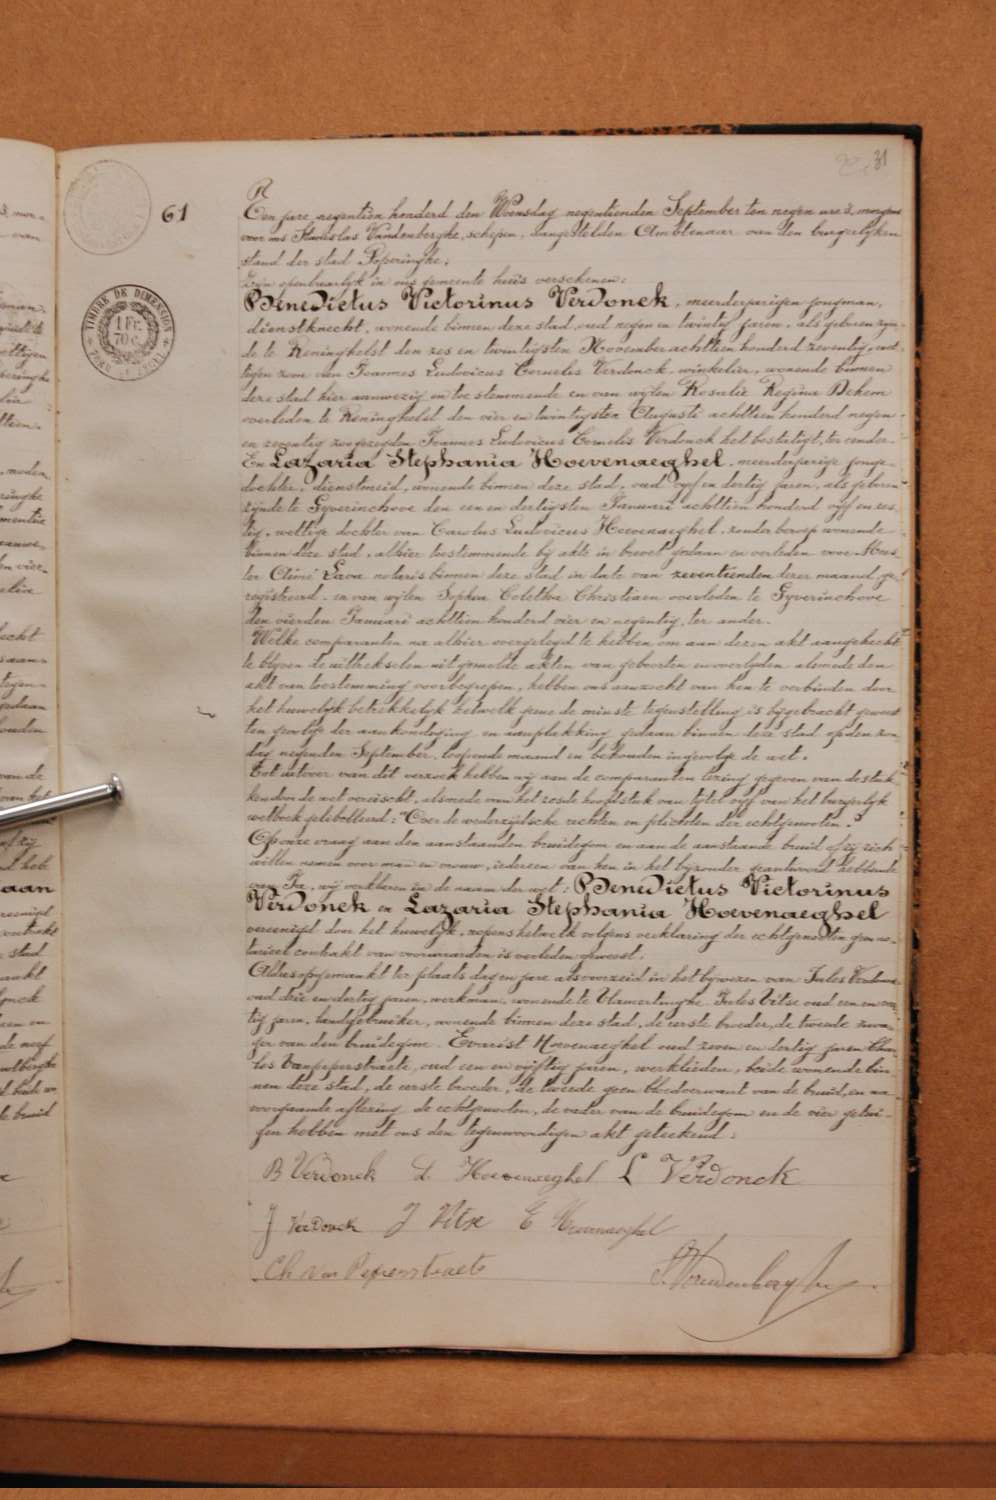 31
61
TIMBRE DE DIMENSION
1 Fr.
70 c.
Ten jare negentien honderd den Woensdag negentienden September ten negen ure 's morgens
voor ons Stanislas Vandenberghe, schepen, aangestelden Ambtenaar van den burgerlyken
stand der stad Poperinghe;
Zyn openbaarlyk in ons gemeente huis verschenen:
Benedictus Victorinus Verdonck, meerderjarigen jongman,
dienstknecht, wonende binnen deze stad, oud negen en twintig jaren, als geboren zyn-
de te Reninghelst den zes en twintigsten November achttien honderd zeventig, wet-
tigen zoon van Joannes Ludovicus Cornelis Verdonck, winkelier, wonende binnen
deze stad hier aanwezig en toestemmende en van wylen Rosalie Regina Dehem
overleden te Reninghelst den vier en twintigsten Augusti achttien honderd negen-
en zeventig zoogezegden Joannes Ludovicus Cornelis Verdonck het bestatigt, ter eender.
En Lazaria Stephania Hoevenaeghel, meerderjarige jonge-
dochter, dienstmeid, wonende binnen deze stad, oud vyf en dertig jaren, als geboren
zynde te Gyverinchove den een en dertigsten Januari achttien honderd vyf en zes-
tig, wettige dochter van Carolus Ludovicus Hoevenaeghel, zonder beroep wonende
binnen deze stad, alhier toestemmende by akte in brevet gedaan en verleden voor Mees-
ter Aimé Lava notaris binnen deze stad in date van zeventienden dezer maand ge-
registreerd, en van wylen Sophia Coletha Christiaen overleden te Gyverinchove
den vierden Januari achttien honderd vier en negentig, ter ander.
Welke comparanten na alhier overgelegd te hebben om aan dezen akt aangehecht
te blyven de uittreksels uit gemelde akten van geboorten en overlyden alsmede den
akt van toestemming voorbegrepen, hebben ons aanzocht van hen te verbinden door
het huwelyk betrekkelyk hetwelk geene de minste tegenstelling is bygebracht geweest
ten gevolge der aankondiging en aanplakking gedaan binnen deze stad op den zon-
dag negenden September, loopende maand en behouden ingevolge de wet.
Tot uitvoer van dit verzoek hebben wy aan de comparanten lezing gegeven van de stuk-
ken door de wet vereischt, alsmede van het zesde hoofdstuk van tytel vyf van het burgerlyk
wetboek getitelleerd: "Over de wederzydsche rechten en plichten der echtgenooten."
Op onze vraag aan den aanstaanden bruidegom en aan de aanstaande bruid of zy zich
willen nemen voor man en vrouw, iedereen van hen in het byzonder geantwoord hebbende
van Ja, wy verklaren in de naam der wet: Benedictus Victorinus
Verdonck en Lazaria Stephania Hoevenaeghel
vereenigd door het huwelyk, nopens hetwelk volgens verklaring der echtgenooten geen no-
tarieel contrakt van voorwaarden is verleden geweest.
Aldus opgemaakt ter plaats dag en jare als voorzeid in het bywezen van Jules Verdonck
oud drie en dertig jaren, werkman, wonende te Vlamertinghe, Jules Vitse oud een en veer-
tig jaren, landgebruiker, wonende binnen deze stad, de eerste broeder, de tweede zwa-
ger van den bruidegom. Evarist Hoevenaeghel oud zeven en dertig jaren Char-
les Vanpeperstraete, oud een en vyftig jaren, werklieden, beide wonende bin-
nen deze stad, de eerste broeder, de tweede geen bloedverwant van de bruid, en na
voorgaande aflezing, de echtgenooten, de vader van de bruidegom en de vier getui-
gen hebben met ons den tegenwoordigen akt geteekend.
B Verdonck L Hoevenaeghel L Verdonck
J Verdonck J Vitse E Hoevenaeghel
Ch Van Peperstraete S. Vandenberghe